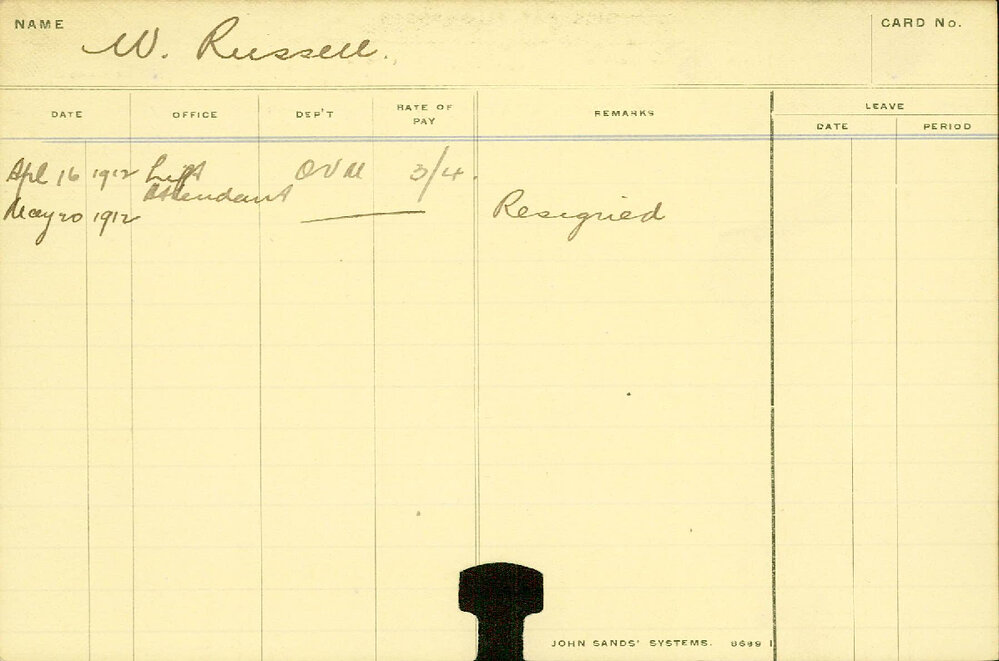 NAME W. Russell. CARD No.
DATE OFFICE DEP'T RATE OF PAY REMARKS LEAVE
DATE PERIOD
Apl 16 1912 Lift 3/4.
Attendant
May 20 1912 Resigned
JOHN SANDS' SYSTEMS.